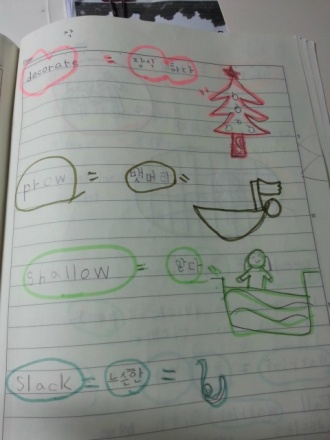 decorate = 장식 하다
prow = 뱃머리 =
shallow = 얕다
slack = 느슨한 =